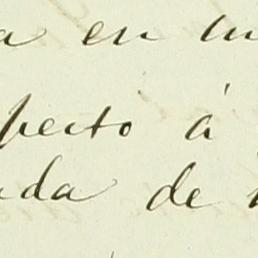 a en
pecto á
da de